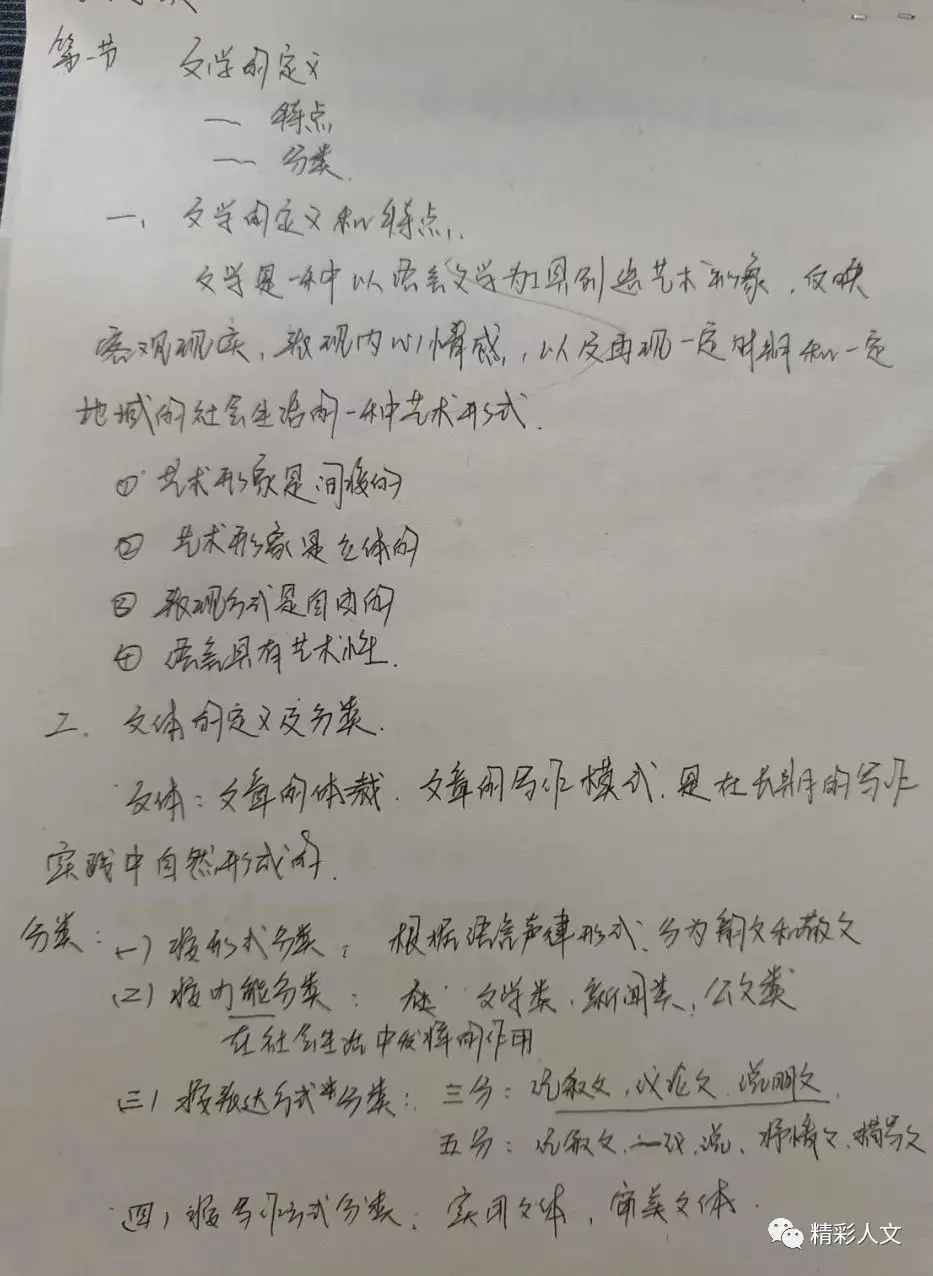 第一节 文学的定义
一 特点
一 分类.
一、文学的定义和特点.
文学是一种以语言文学为工具创造艺术形象、反映
客观现实、表现内心情感,以及再现一定时期和一定
地域的社会生活的一种艺术形式.
① 艺术形象是间接的
② 艺术形象是立体的
③ 表现方式是自由的
④ 语言具有艺术性.
二、文体的定义及分类.
文体:文章的体裁、文章的写作模式、是在长期的写作
实践中自然形成的.
分类:(一)按形式分类:根据语言声律形式、分为韵文和散文
(二)按功能分类:文学类、新闻类、公文类
在社会生活中发挥的作用
(三)按表达方式分类:三分:记叙文、议论文、说明文
五分:记叙文、议、说、抒情文、描写文
(四)按写作方式分类:实用文体、审美文体.
精彩人文